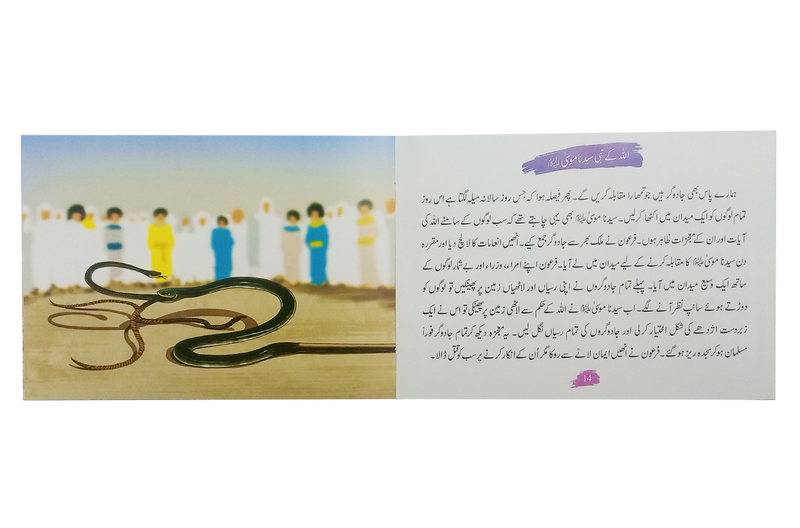 اللہ کے نبی سیدنا موسیٰ علیہ السلام
ہمارے پاس بھی جادوگر ہیں جو تمھارا مقابلہ کریں گے۔ پھر فیصلہ ہوا کہ جس روز سالانہ میلہ لگتا ہے اس روز
تمام لوگوں کو ایک میدان میں اکٹھا کر لیں۔ سیدنا موسیٰ علیہ السلام بھی یہی چاہتے تھے کہ سب لوگوں کے سامنے اللہ کی
آیات اور ان کے معجزات ظاہر ہوں۔ فرعون نے ملک بھر سے جادوگر جمع کیے۔ انھیں انعامات کا لالچ دیا اور مقررہ
دن سیدنا موسیٰ علیہ السلام کا مقابلہ کرنے کے لیے میدان میں لے آیا۔ فرعون اپنے امراء، وزراء اور بے شمار لوگوں کے
ساتھ ایک وسیع میدان میں آیا۔ پہلے تمام جادوگروں نے اپنی رسیاں اور لاٹھیاں زمین پر پھینکیں تو لوگوں کو
دوڑتے ہوئے سانپ نظر آنے لگے۔ اب سیدنا موسیٰ علیہ السلام نے اللہ کے حکم سے لاٹھی زمین پر پھینکی تو اس نے ایک
زبردست اژدھے کی شکل اختیار کر لی اور جادوگروں کی تمام رسیاں نگل لیں۔ یہ معجزہ دیکھ کر تمام جادوگر فوراً
مسلمان ہو کر سجدہ ریز ہو گئے۔ فرعون نے انھیں ایمان لانے سے روکا مگر اُن کے انکار کرنے پر سب کو قتل کر ڈالا۔
14